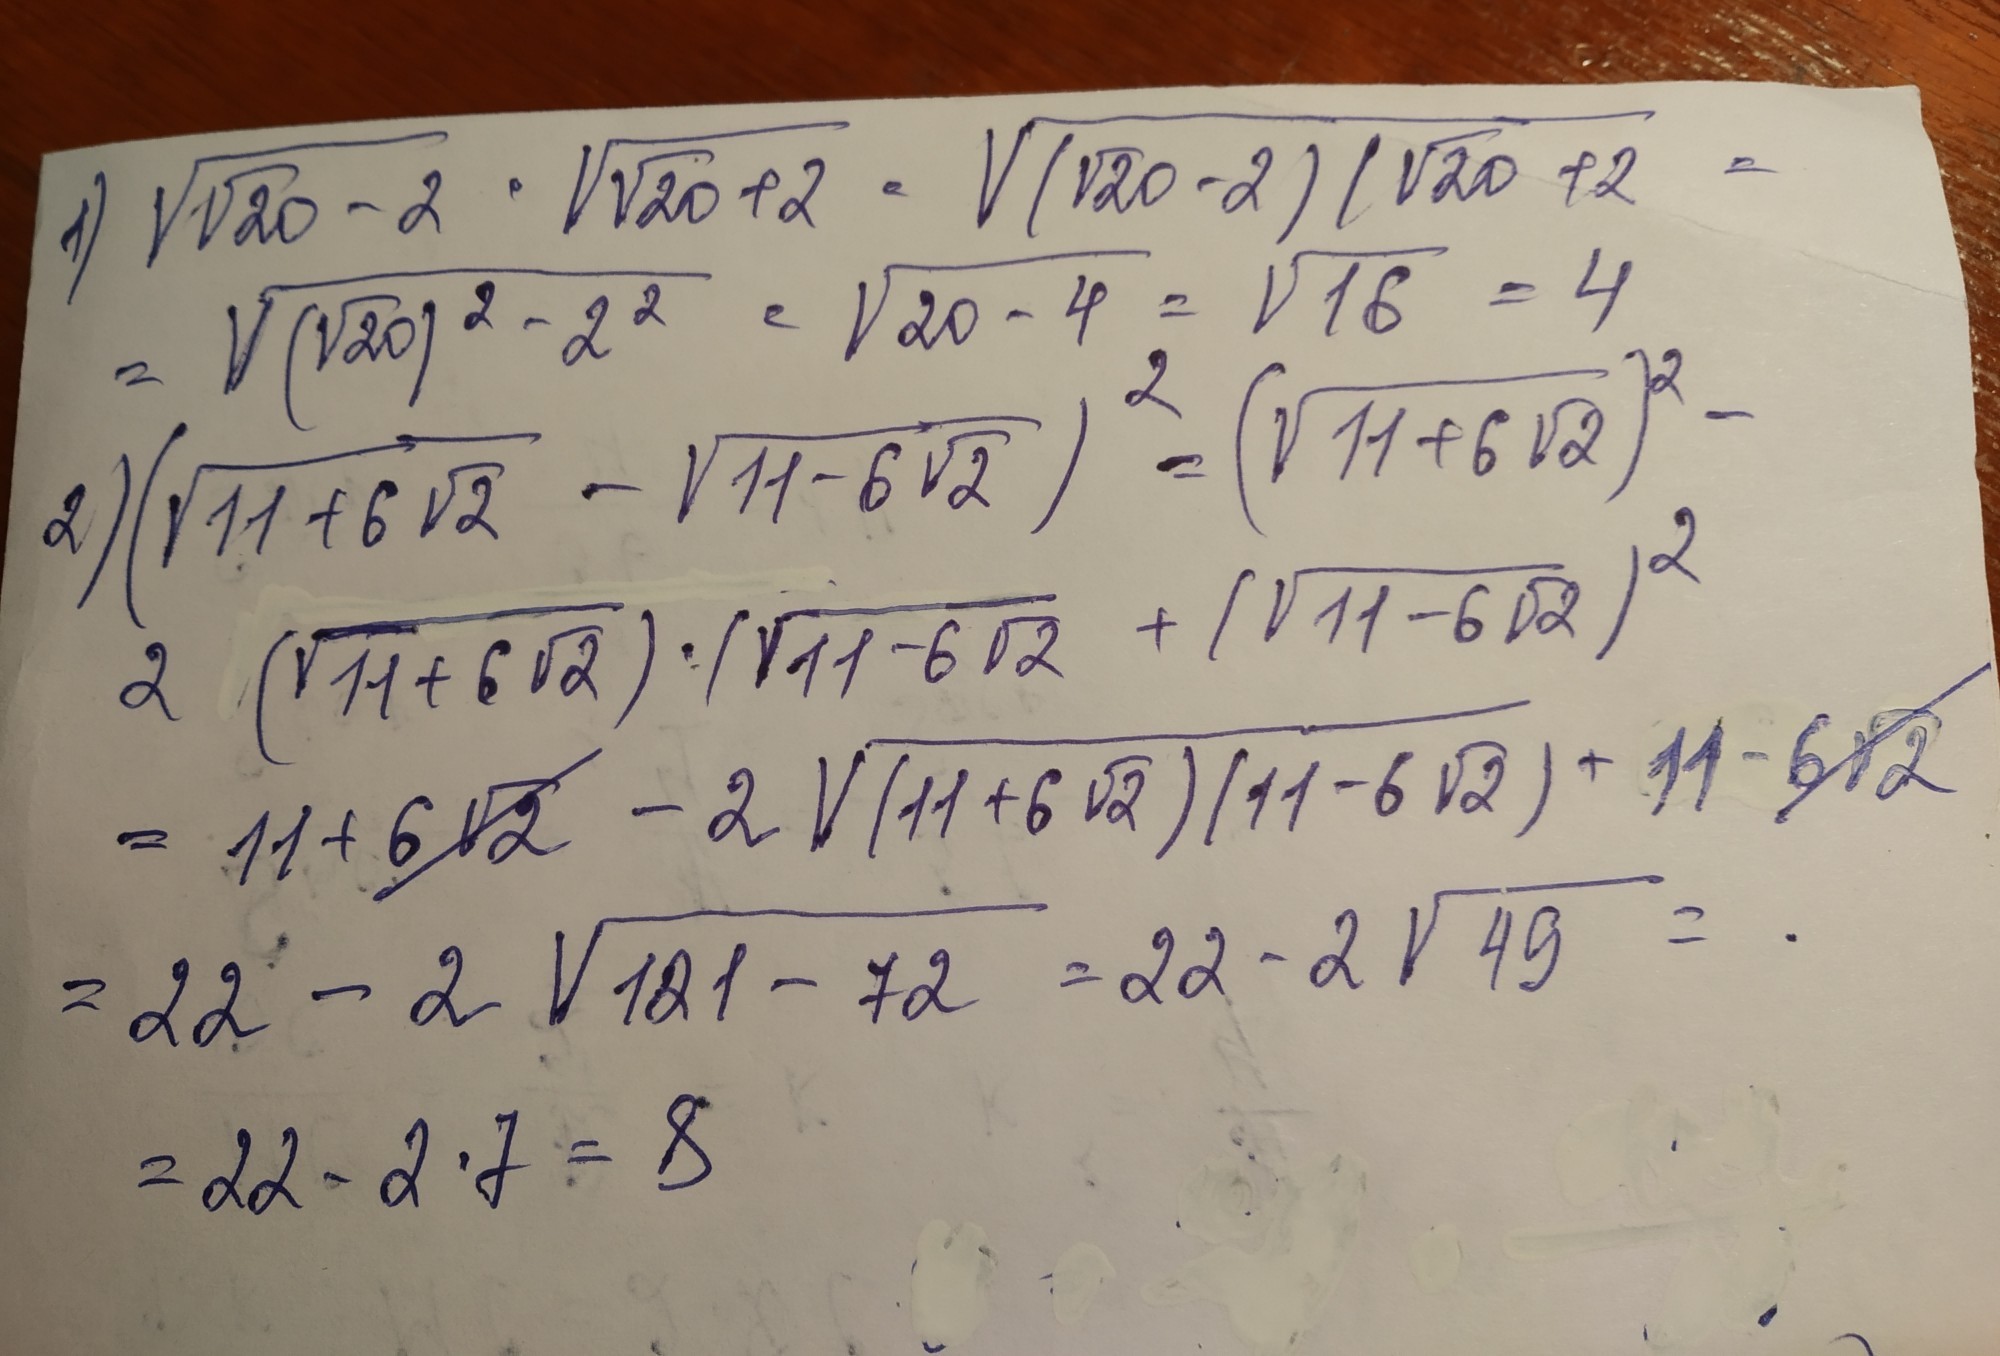 1) √(√20 - 2) · √(√20 + 2) = √((√20 - 2)(√20 + 2) =
= √((√20)² - 2²) = √(20 - 4) = √16 = 4
2) (√(11 + 6√2) - √(11 - 6√2))² = (√(11 + 6√2))² -
2 (√(11 + 6√2)) · (√(11 - 6√2) + (√(11 - 6√2))²
= 11 + 6√2 - 2√((11 + 6√2)(11 - 6√2)) + 11 - 6√2
= 22 - 2√(121 - 72) = 22 - 2√49 =
= 22 - 2 · 7 = 8